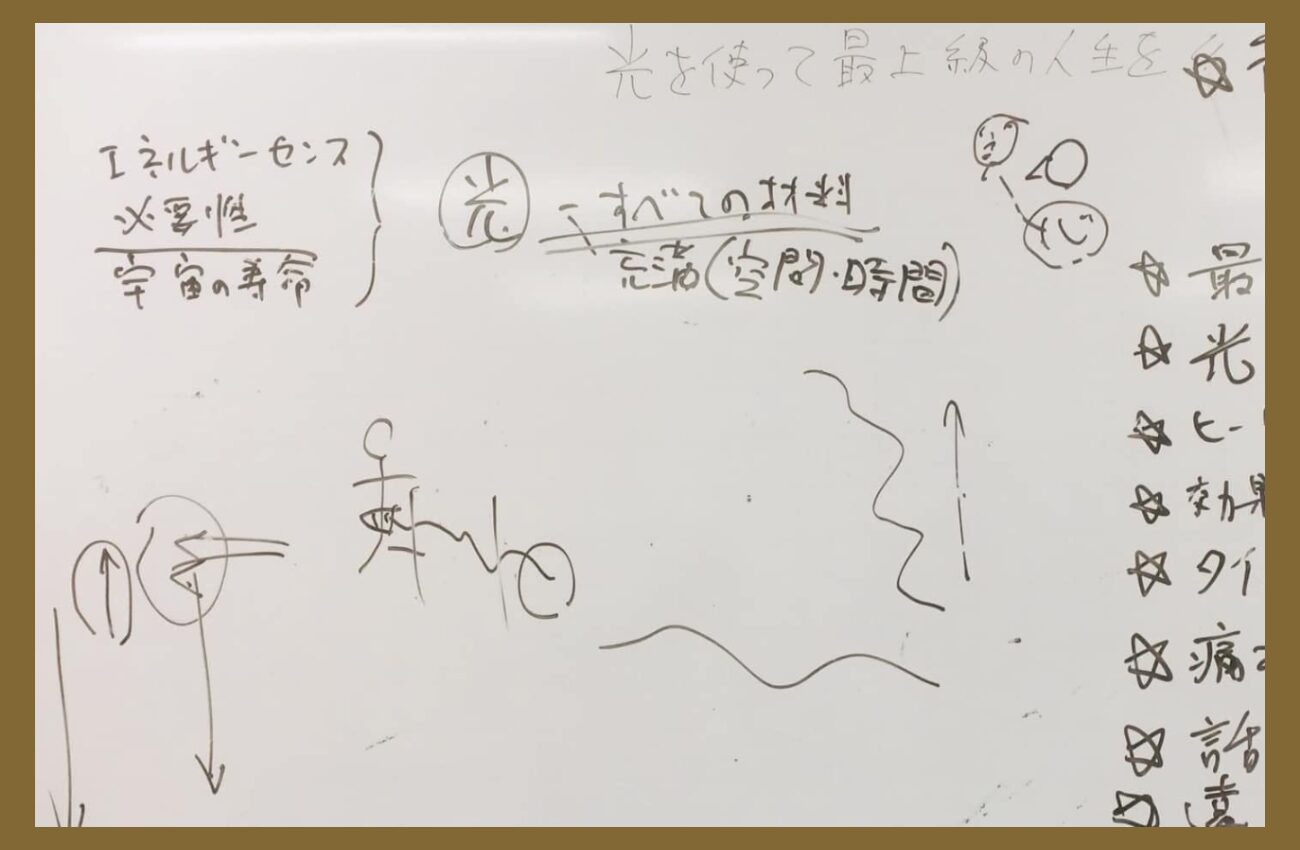 光を使って最上級の人生を
エネルギーセンス
必要性
宇宙の寿命
光 = すべての材料
充満(空間・時間)
☆ 最
☆ 光
☆ ヒー
☆ 効果
☆ タイ
☆ 痛
☆ 話
☆ 遠